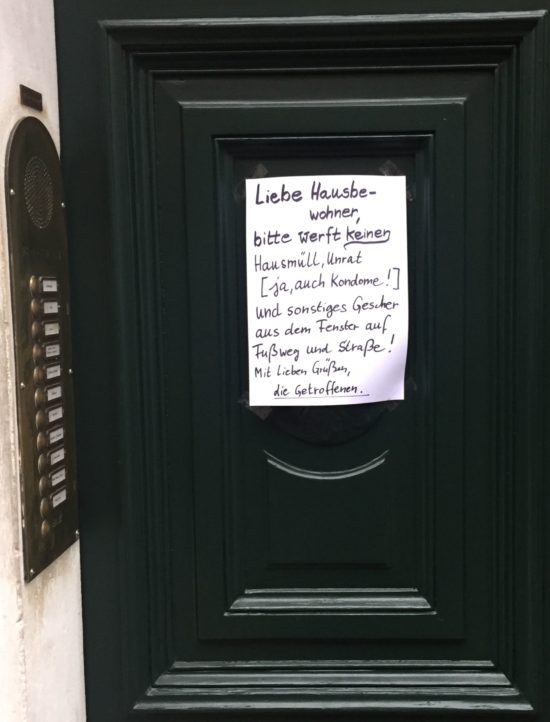 Liebe Hausbe-
wohner,
bitte werft keinen
Hausmüll, Unrat
[ja, auch Kondome!]
und sonstiges Gescher
aus dem Fenster auf
Fußweg und Straße!
Mit Lieben Grüßen,
die Getroffenen.